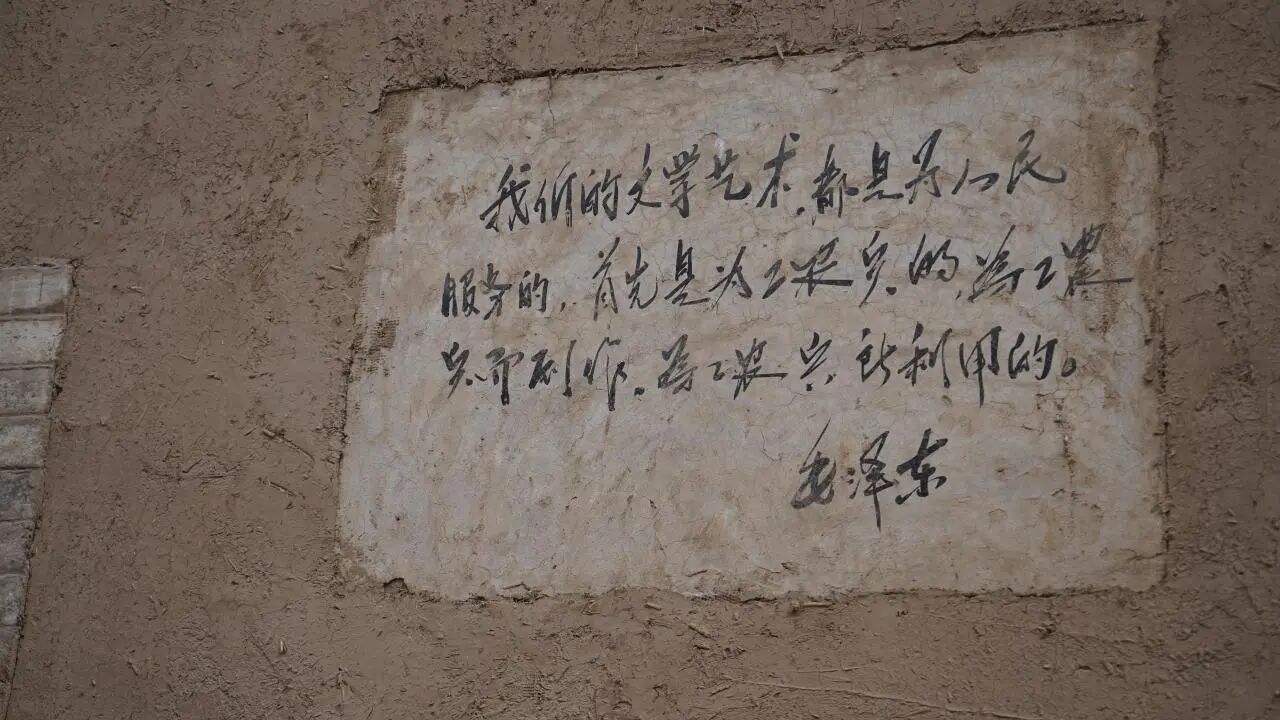 我们的文学艺术,都是为人民
服务的,首先是为工农兵的,为工農
兵而创作,为工农兵所利用的。
毛泽东